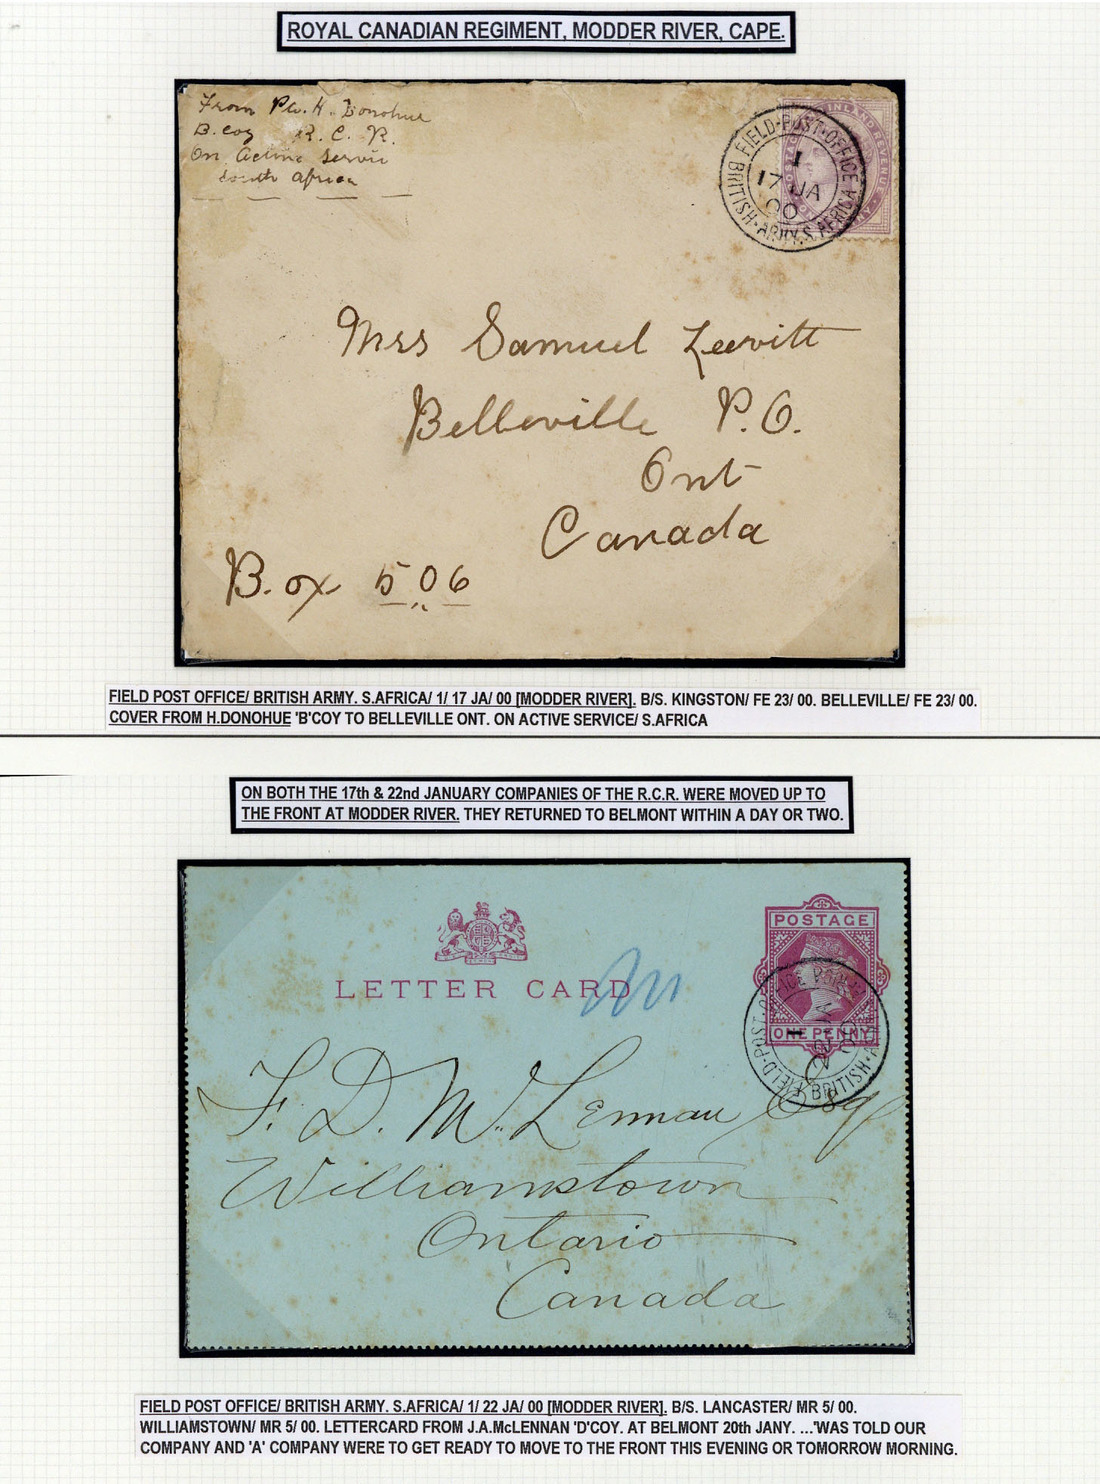 ROYAL CANADIAN REGIMENT, MODDER RIVER, CAPE.
From Pte. H. Donohue
B. Coy R. C. R.
On Active Servic
South Africa
FIELD·POST·OFFICE
1
17 JA
00
BRITISH·ARMY.S.AFRICA
INLAND REVENUE
Mrs Samuel Leavitt
Belleville P.O.
Ont
Canada
Box 506
FIELD POST OFFICE/ BRITISH ARMY. S.AFRICA/ 1/ 17 JA/ 00 [MODDER RIVER]. B/S. KINGSTON/ FE 23/ 00. BELLEVILLE/ FE 23/ 00.
COVER FROM H.DONOHUE 'B'COY TO BELLEVILLE ONT. ON ACTIVE SERVICE/ S.AFRICA
ON BOTH THE 17th & 22nd JANUARY COMPANIES OF THE R.C.R. WERE MOVED UP TO
THE FRONT AT MODDER RIVER. THEY RETURNED TO BELMONT WITHIN A DAY OR TWO.
LETTER CARD
POSTAGE
ONE PENNY
FIELD·POST·OFFICE
BRITISH·A
F. D. McLennan Esq
Williamstown
Ontario
Canada
FIELD POST OFFICE/ BRITISH ARMY. S.AFRICA/ 1/ 22 JA/ 00 [MODDER RIVER]. B/S. LANCASTER/ MR 5/ 00.
WILLIAMSTOWN/ MR 5/ 00. LETTERCARD FROM J.A.McLENNAN 'D'COY. AT BELMONT 20th JANY. ...'WAS TOLD OUR
COMPANY AND 'A' COMPANY WERE TO GET READY TO MOVE TO THE FRONT THIS EVENING OR TOMORROW MORNING.